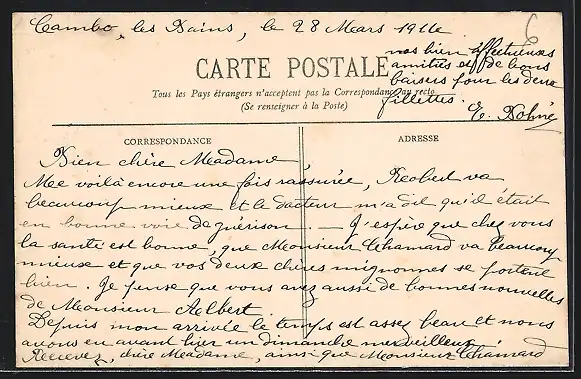 Cambo, les Bains, le 28 Mars 1916
6
nos bien affectueuses
amitiés et de bons
baisers pour les deux
fillettes.
E. Dohné
CARTE POSTALE
Tous les Pays étrangers n'acceptent pas la Correspondance au recto.
(Se renseigner à la Poste)
CORRESPONDANCE
ADRESSE
Bien chère Madame,
Me voilà encore une fois rassurée, Robert va
beaucoup mieux et le docteur m'a dit qu'il était
en bonne voie de guérison. — J'espère que chez vous
la santé est bonne, que Monsieur Chamard va beaucoup
mieux et que vos deux chères mignonnes se portent
bien. Je pense que vous avez aussi de bonnes nouvelles
de Monsieur Albert.
Depuis mon arrivée le temps est assez beau et nous
avons eu avant hier un dimanche merveilleux.
Recevez, chère Madame, ainsi que Monsieur Chamard